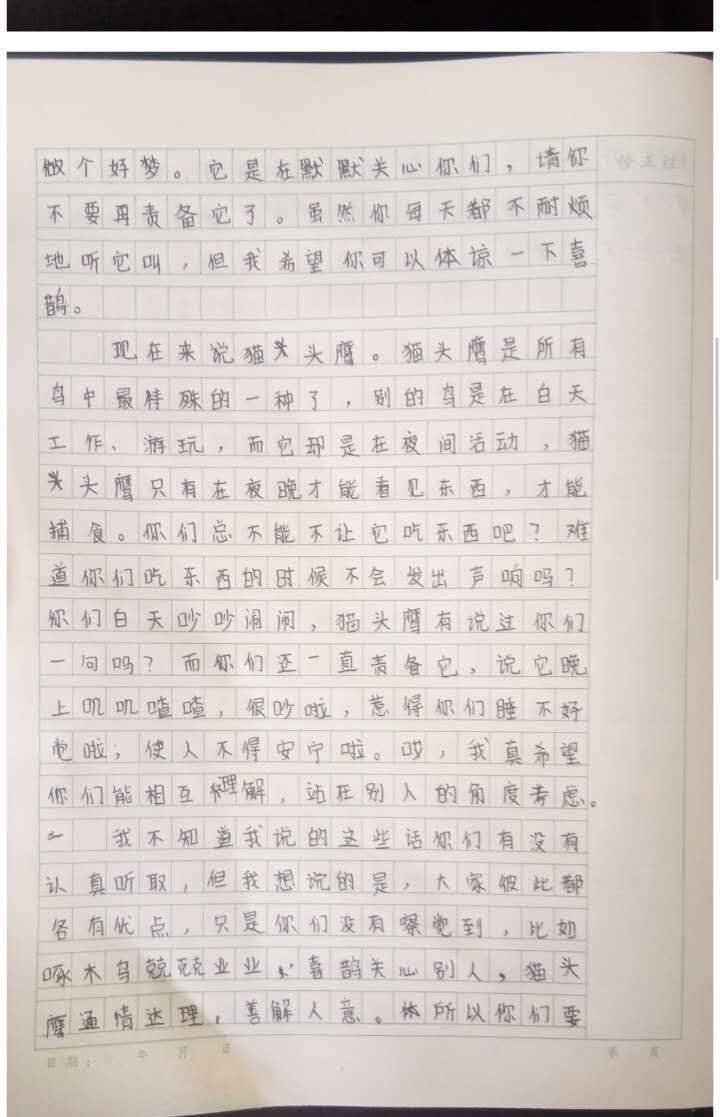 做个好梦。它是在默默关心你们，请你
不要再责备它了。虽然你每天都不耐烦
地听它叫，但我希望你可以体谅一下喜
鹊。
现在来说猫头头鹰。猫头鹰是所有
鸟中最特殊的一种了，别的鸟是在白天
工作、游玩，而它却是在夜间活动，猫
头头鹰只有在夜晚才能看见东西，才能
捕食。你们总不能不让它吃东西吧？难
道你们吃东西的时候不会发出声响吗？
你们白天吵吵闹闹，猫头鹰有说过你们
一句吗？而你们还一直责备它，说它晚
上叽叽喳喳，很吵啦，惹得你们睡不好
觉啦，使人不得安宁啦。哎，我真希望
你们能相互理解，站在别人的角度考虑。
我不知道我说的这些话你们有没有
认真听取，但我想说的是，大家彼此都
各有优点，只是你们没有察觉到，比如
啄木鸟兢兢业业，喜鹊关心别人，猫头
鹰通情达理，善解人意。所以你们要
日期： 年 月 日 第 页